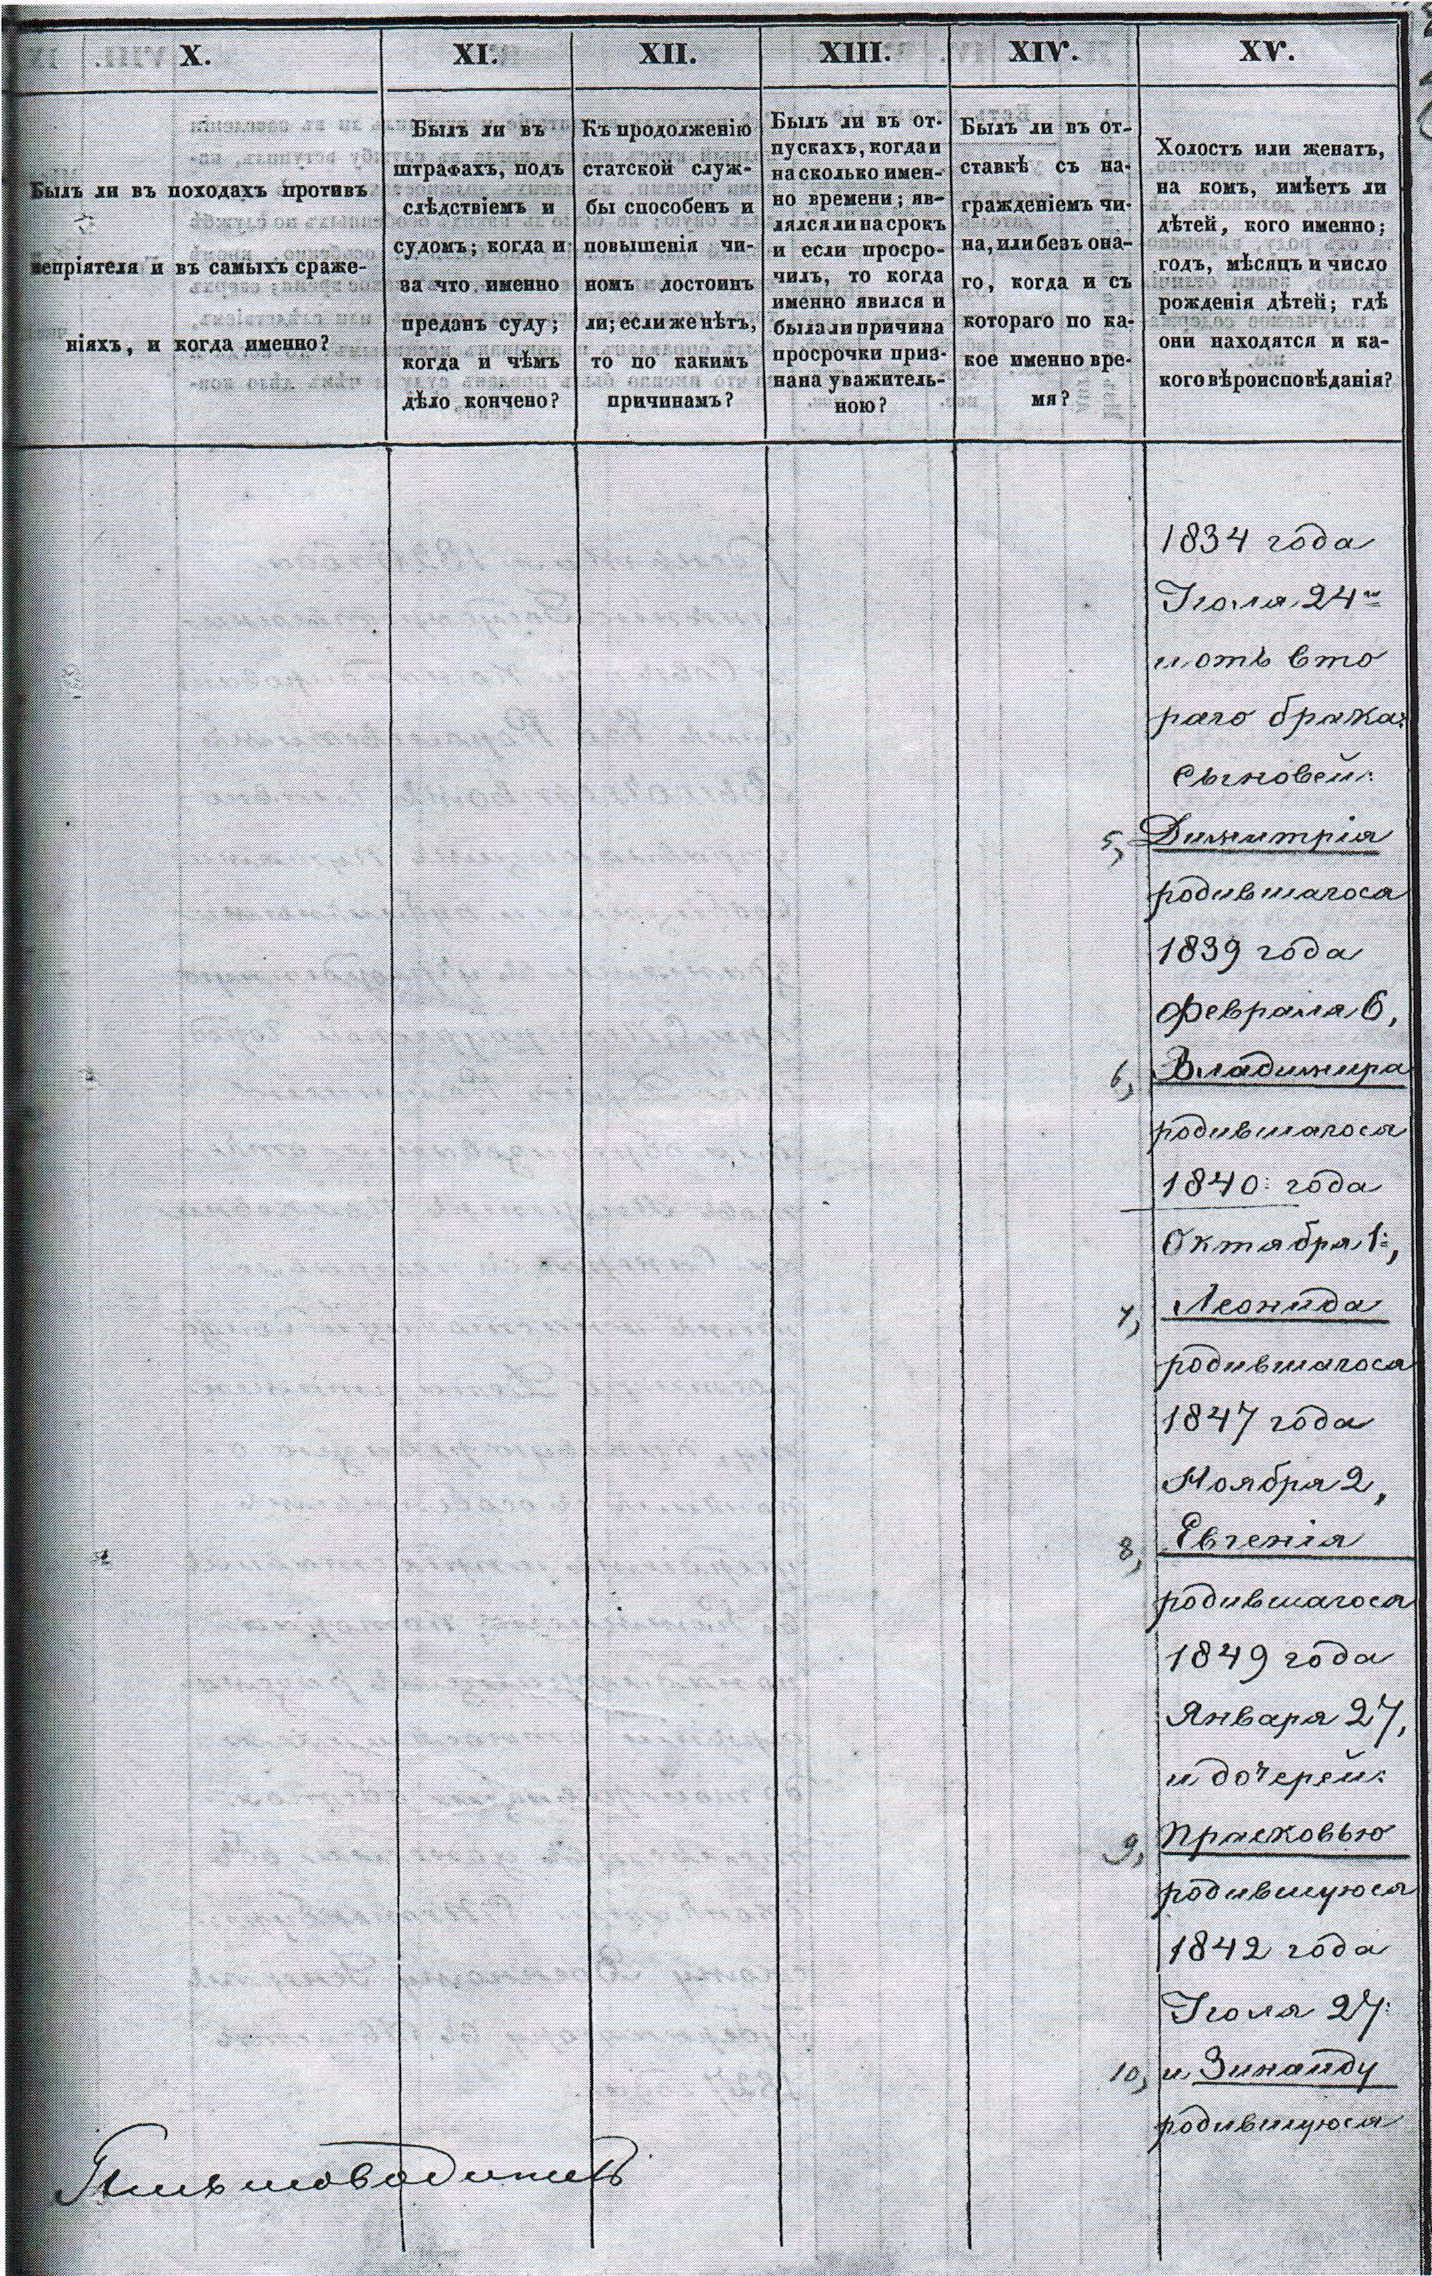 X.
Былъ ли въ походахъ противъ
непріятеля и въ самыхъ сраже-
ніяхъ, и когда именно?
XI.
Былъ ли въ
штрафахъ, подъ
слѣдствіемъ и
судомъ; когда и
за что именно
преданъ суду;
когда и чѣмъ
дѣло кончено?
XII.
Къ продолженію
статской служ-
бы способенъ и
повышенія чи-
номъ достоинъ
ли; если же нѣтъ,
то по какимъ
причинамъ?
XIII.
Былъ ли въ от-
пускахъ, когда и
на сколько имен-
но времени; яв-
лялся ли на срокъ
и если просро-
чилъ, то когда
именно явился и
была ли причина
просрочки приз-
нана уважитель-
ною?
XIV.
Былъ ли въ от-
ставкѣ съ на-
гражденіемъ чи-
на, или безъ она-
го, когда и съ
котораго по ка-
кое именно вре-
мя?
XV.
Холостъ или женатъ,
на комъ, имѣетъ ли
дѣтей, кого именно;
годъ, мѣсяцъ и число
рожденія дѣтей; гдѣ
они находятся и ка-
кого вѣроисповѣданія?
1834 года
Іюля 24
и отъ вто
раго брака:
сыновей:
5, Димитрія
родившагося
1839 года
Февраля 6,
6, Владимира
родившагося
1840: года
Октября 1:,
7, Леонида
родившагося
1847 года
Ноября 2,
8, Евгенія
родившагося
1849 года
Января 27,
и дочерей:
9, Прасковью
родившуюся
1842 года
Іюля 27:
10, и Зинаиду
родившуюся